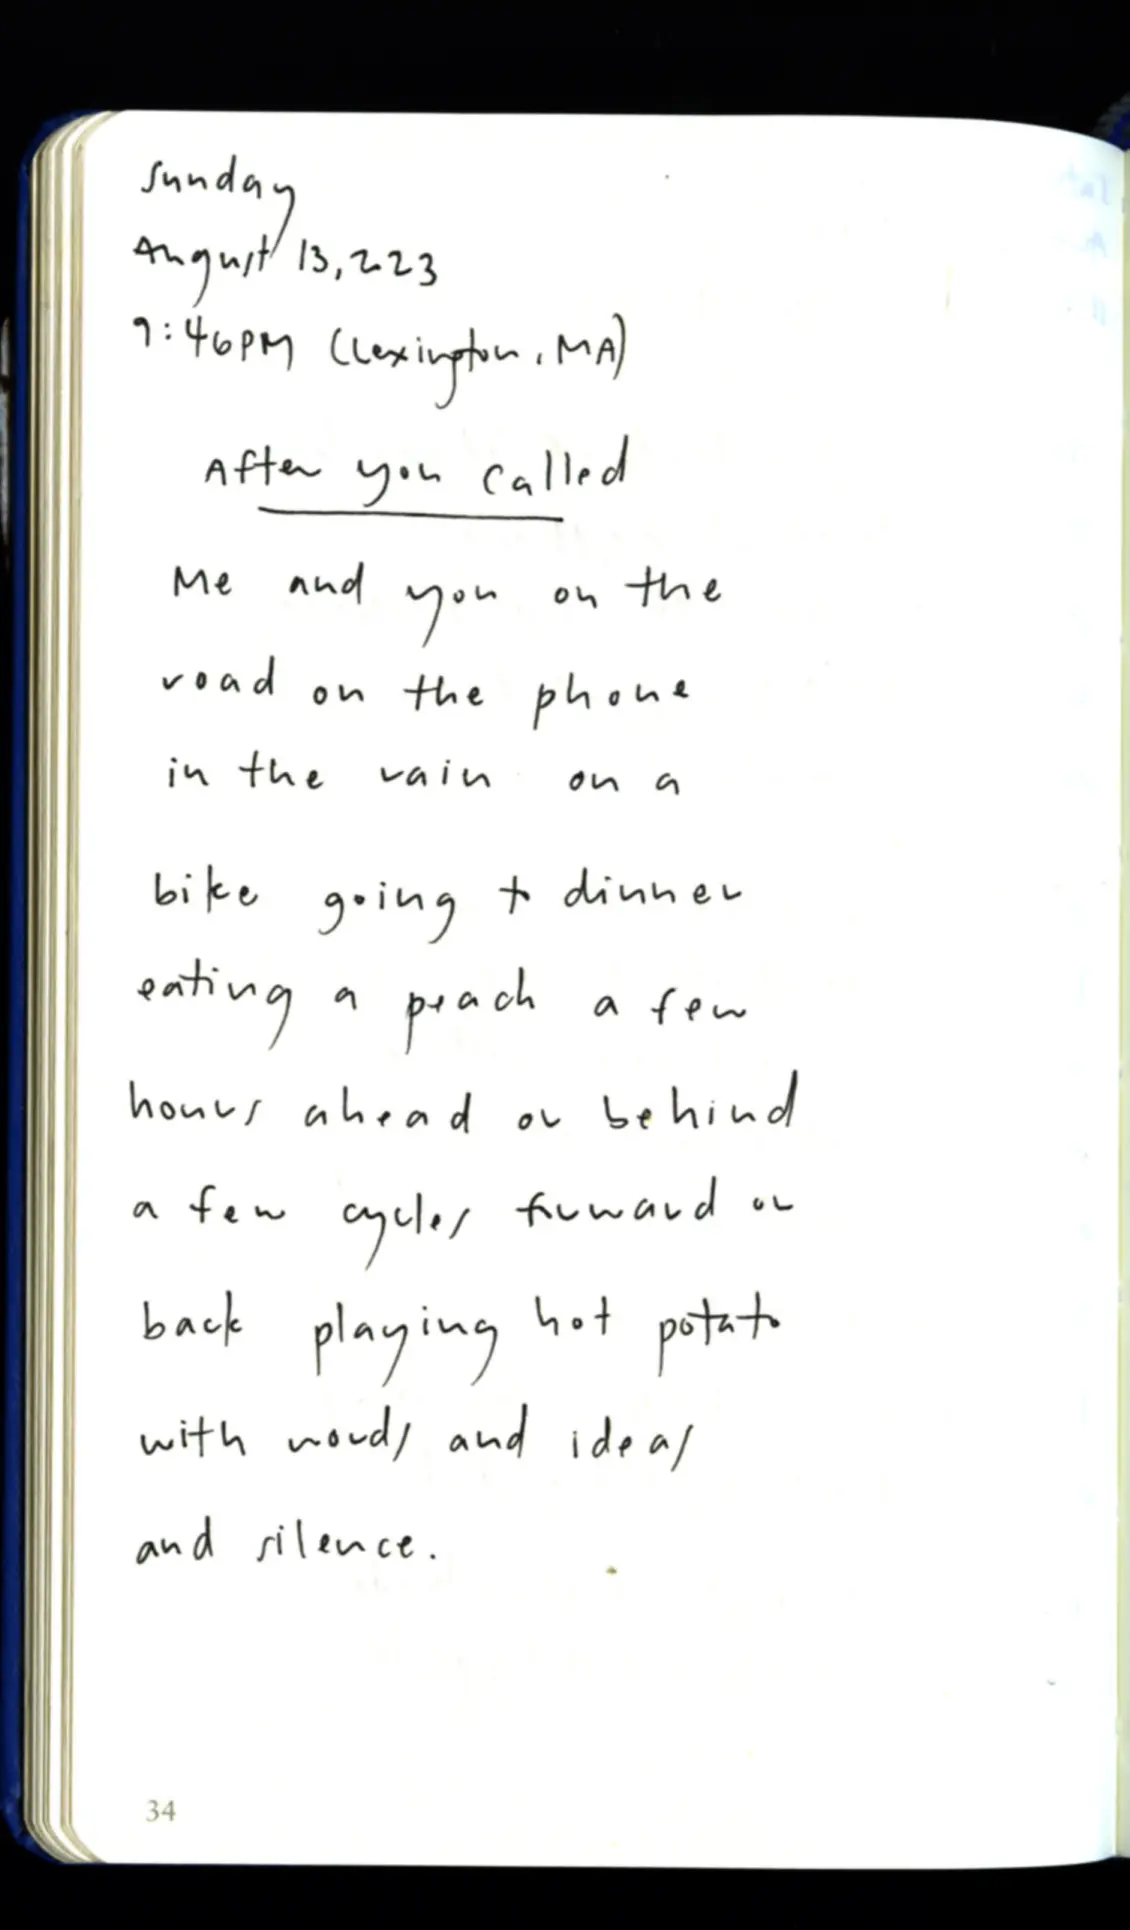 Sunday
August 13, 2023
9:46PM (Lexington, MA)
After you called
Me and you on the
road on the phone
in the rain on a
bike going to dinner
eating a peach a few
hours ahead or behind
a few cycles forward or
back playing hot potato
with words and ideas
and silence.
34